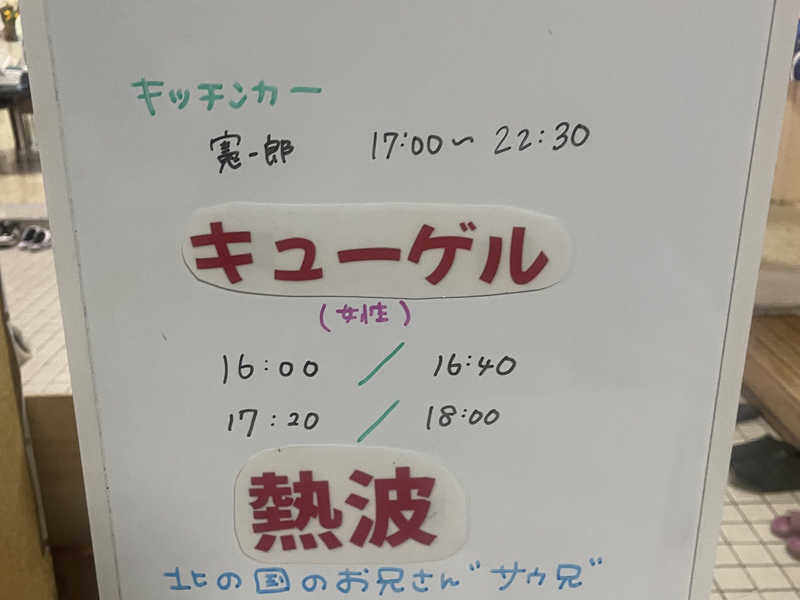 キッチンカー
憲一郎 17:00～22:30
キューゲル
(女性)
16:00 / 16:40
17:20 / 18:00
熱波
北の国のお兄さん"サウ兄"